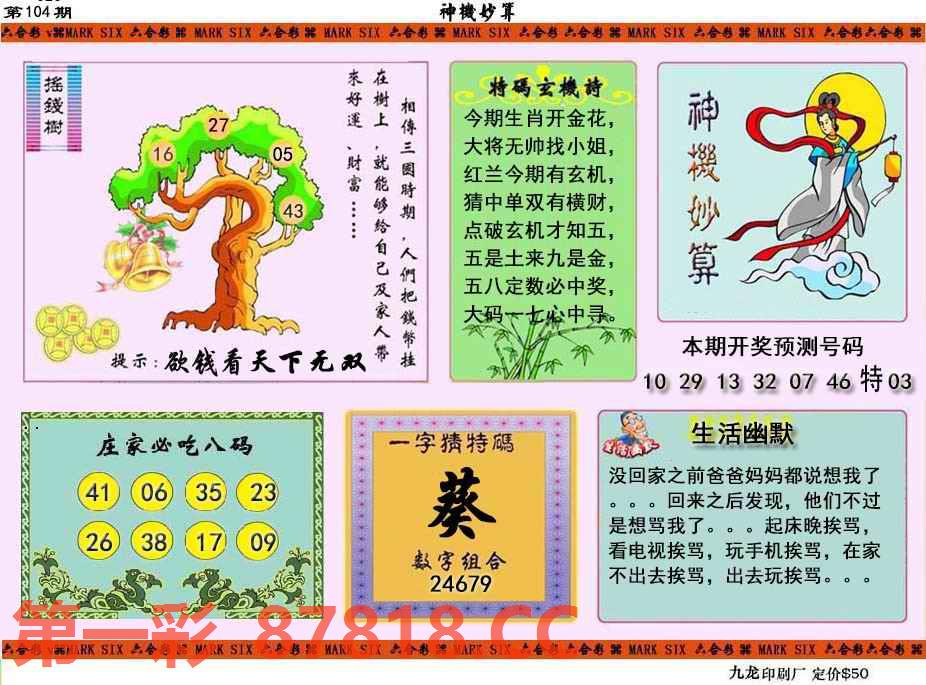 第104期
神機妙算
六合彩 MARK SIX 六合彩 MARK SIX 六合彩 MARK SIX 六合彩 MARK SIX 六合彩 MARK SIX 六合彩 MARK SIX 六合彩 MARK SIX 六合彩
搖錢樹
27
16
05
43
相傳三國時期，人們把錢幣挂
在樹上，就能够給自己及家人帶
來好運、財富……
提示:欲钱看天下无双
特碼玄機詩
今期生肖开金花，
大将无帅找小姐，
红兰今期有玄机，
猜中单双有横财，
点破玄机才知五，
五是土来九是金，
五八定数必中奖，
大码一七心中寻。
神機妙算
本期开奖预测号码
10 29 13 32 07 46 特03
庄家必吃八码
41 06 35 23
26 38 17 09
一字猜特碼
葵
数字组合
24679
生活幽默
生活幽默
没回家之前爸爸妈妈都说想我了
。。。回来之后发现，他们不过
是想骂我了。。。起床晚挨骂，
看电视挨骂，玩手机挨骂，在家
不出去挨骂，出去玩挨骂。。。
第一彩 87818.CC
六合彩 MARK SIX 六合彩 MARK SIX 六合彩 MARK SIX 六合彩 MARK SIX 六合彩 MARK SIX 六合彩 MARK SIX 六合彩 MARK SIX 六合彩
九龙印刷厂 定价$50